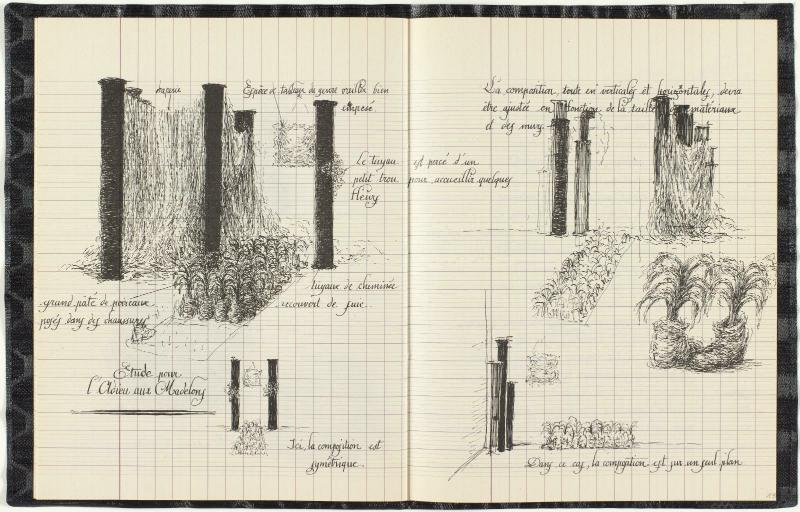 drapeau
Espèce de tableau du genre oreiller bien
empesé
Le tuyau est percé d'un
petit trou pour accueillir quelques
fleurs
grand pâté de poireaux
posés dans des chaussures
tuyaux de cheminée
recouvert de suie.
Etude pour
l'Adieu aux Madelons
Ici, la composition est
symétrique.
La composition, toute en verticales et horizontales, devra
être ajustée en fonction de la taille des matériaux
et des murs.
Dans ce cas, la composition est sur un seul plan